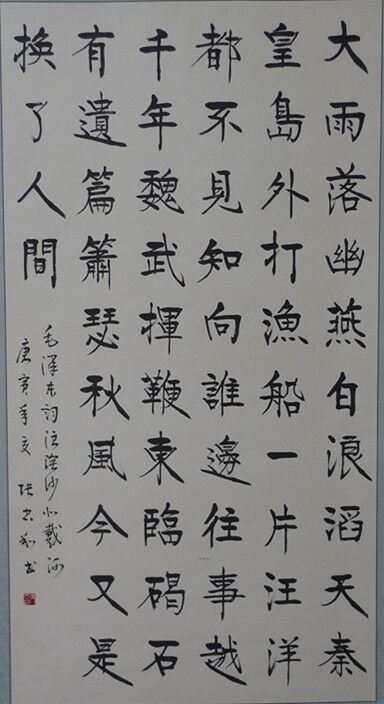 大雨落幽燕白浪滔天秦
皇島外打漁船一片汪洋
都不見知向誰邊往事越
千年魏武揮鞭東臨碣石
有遺篇簫瑟秋風今又是
換了人間
毛澤东詞浪淘沙北戴河
庚寅年夏 张书